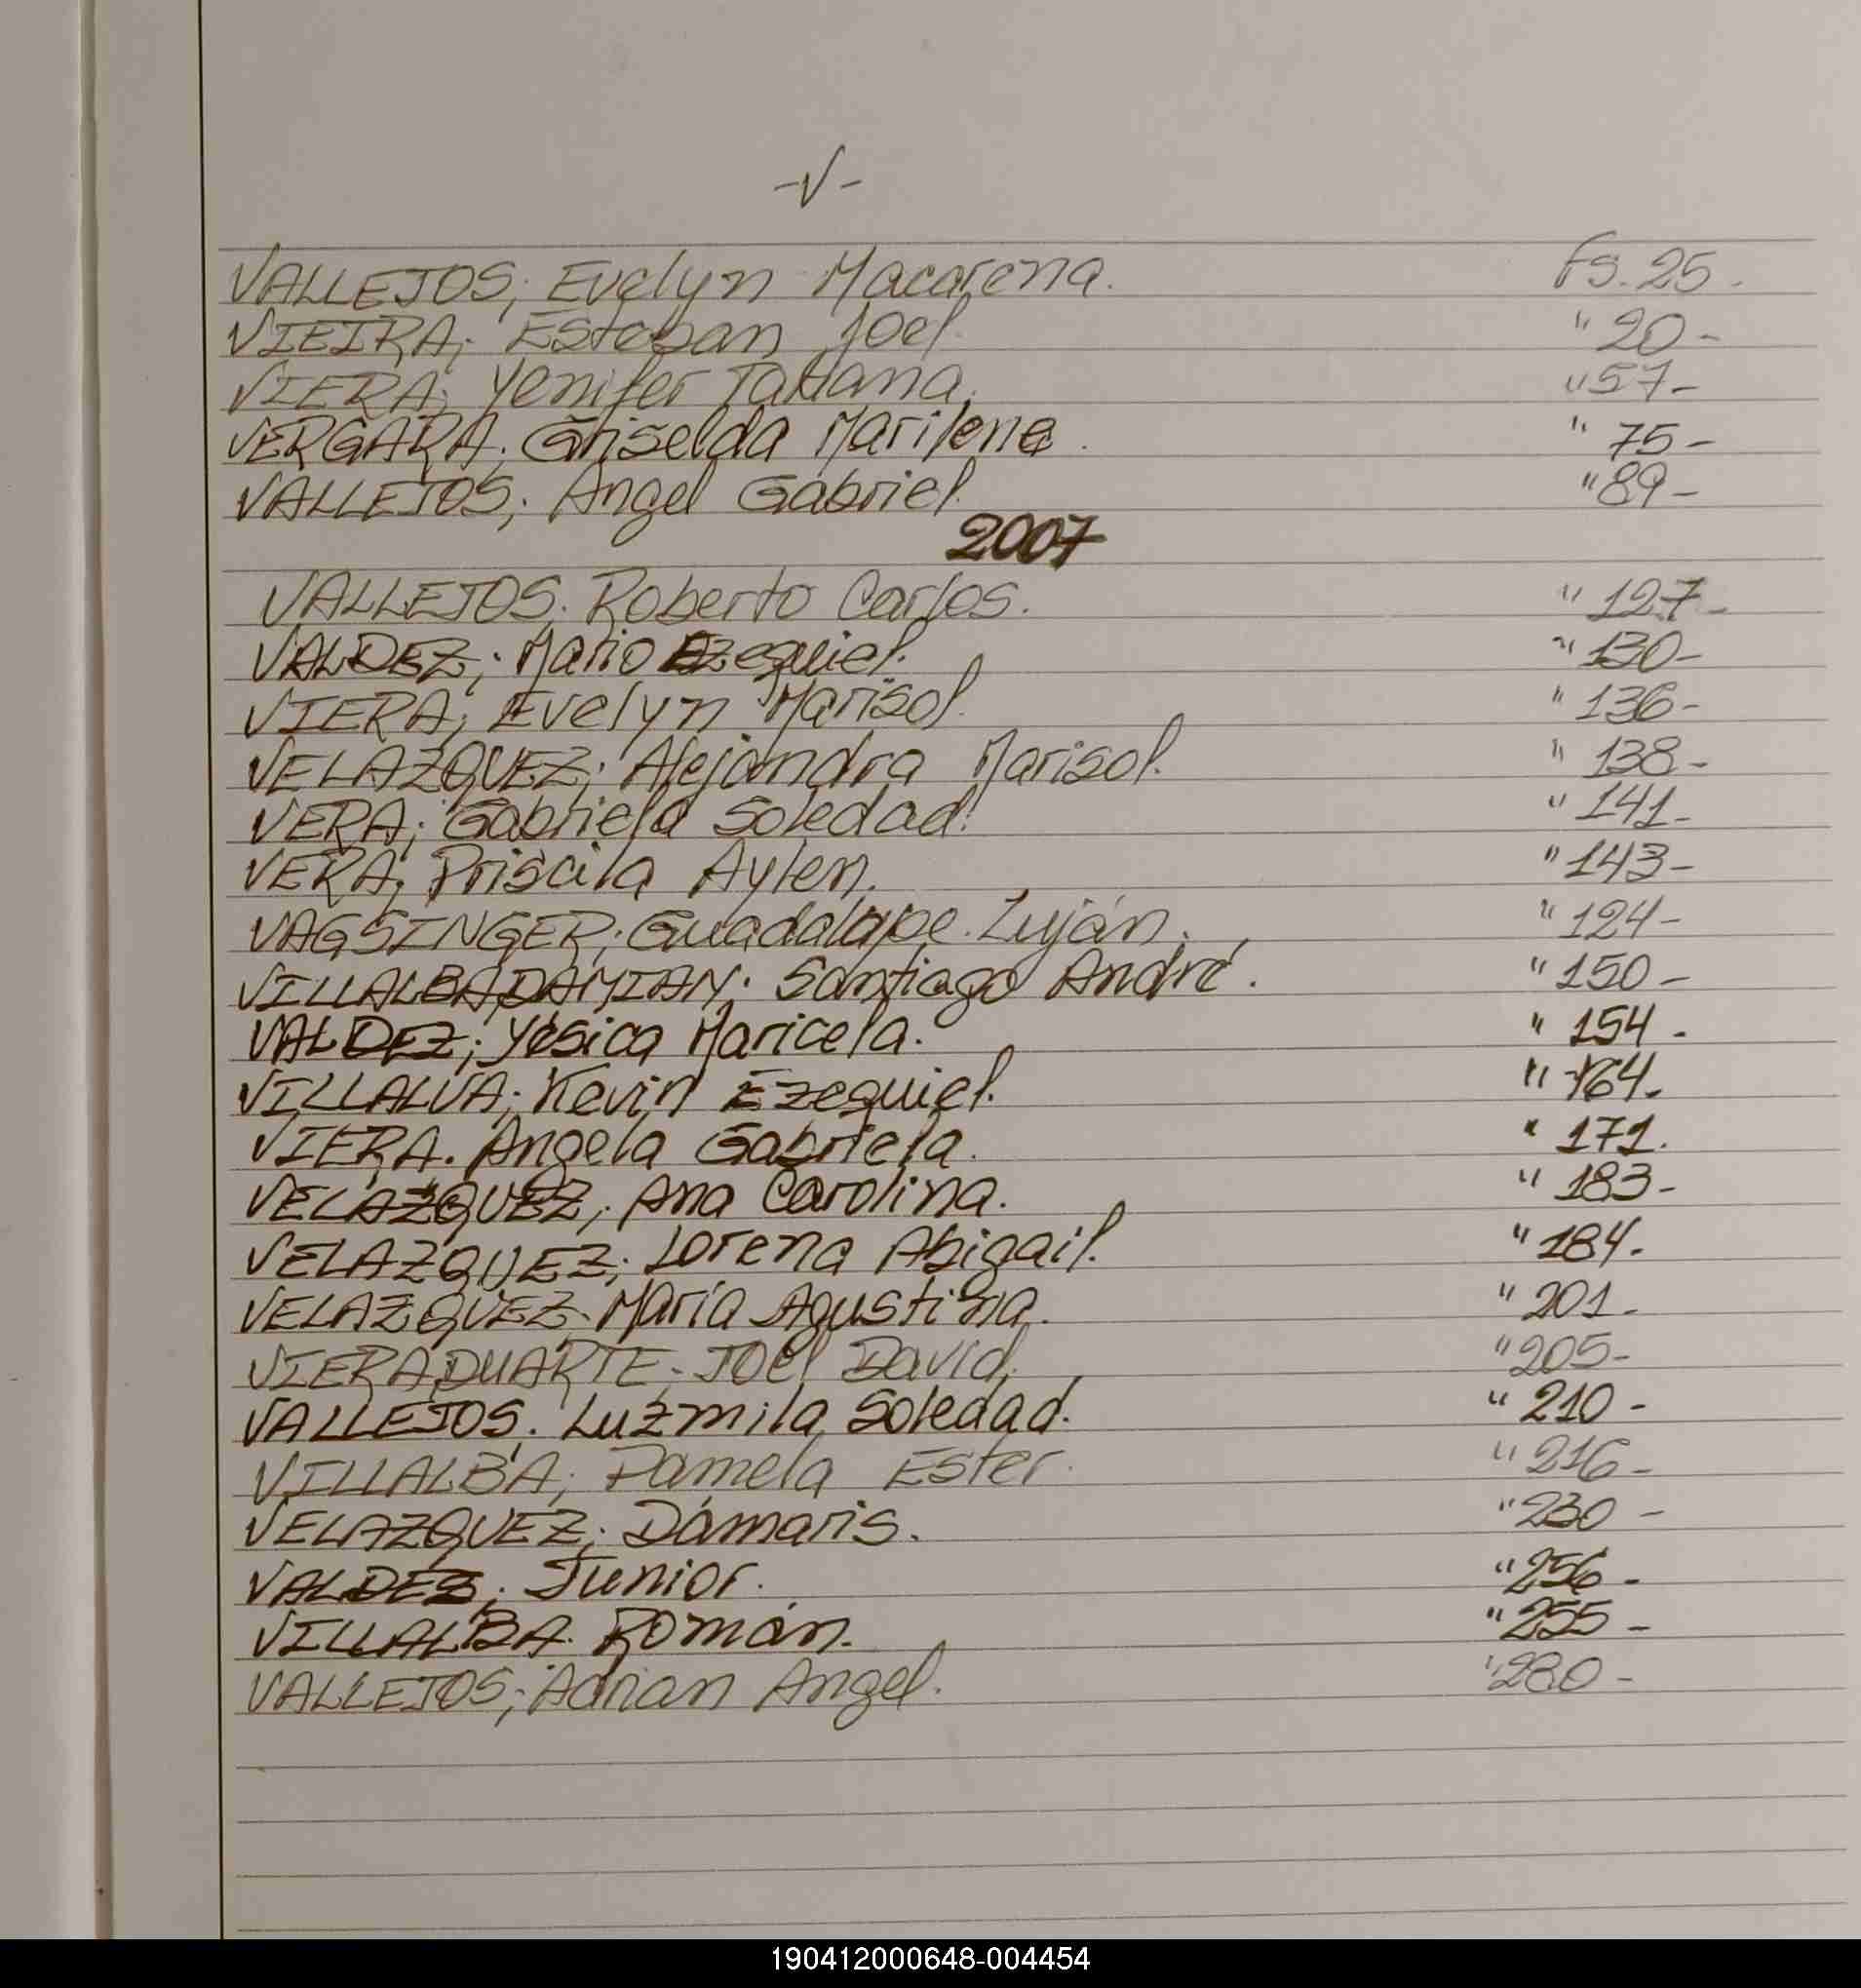 -V-
VALLEJOS; Evelyn Macarena. Fs. 25.
VIEIRA; Esteban Joel. " 20-
VIERA; Yenifer Tatiana. " 57-
VERGARA; Griselda Marilene. " 75-
VALLEJOS; Angel Gabriel. " 89-
2007
VALLEJOS. Roberto Carlos. " 127-
VALDEZ; Mario Ezequiel. " 130-
VIERA; Evelyn Marisol. " 136-
VELAZQUEZ; Alejandra Marisol. " 138-
VERA; Gabriela Soledad. " 141-
VERA; Priscila Aylen. " 143-
VAGSINGER; Guadalupe Luján. " 124-
VILLALBA DAMIAN. Santiago André. " 150-
VALDEZ; Yésica Maricela. " 154-
VILLALVA; Kevin Ezequiel. " 164.
VIERA. Angela Gabriela. " 171.
VELAZQUEZ; Ana Carolina. " 183-
VELAZQUEZ; Lorena Abigail. " 184.
VELAZQUEZ. María Agustina. " 201.
VIERA DUARTE. Joel David. " 205-
VALLEJOS. Luzmila Soledad. " 210-
VILLALBA; Pamela Ester. " 216-
VELAZQUEZ; Dámaris. " 230-
VALDEZ; Junior. " 256-
VILLALBA. Román. " 255-
VALLEJOS; Adrian Angel. " 280-
190412000648-004454